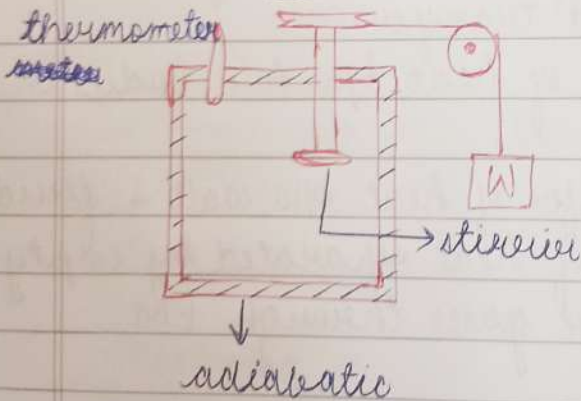 thermometer
W
stirrer
adiabatic